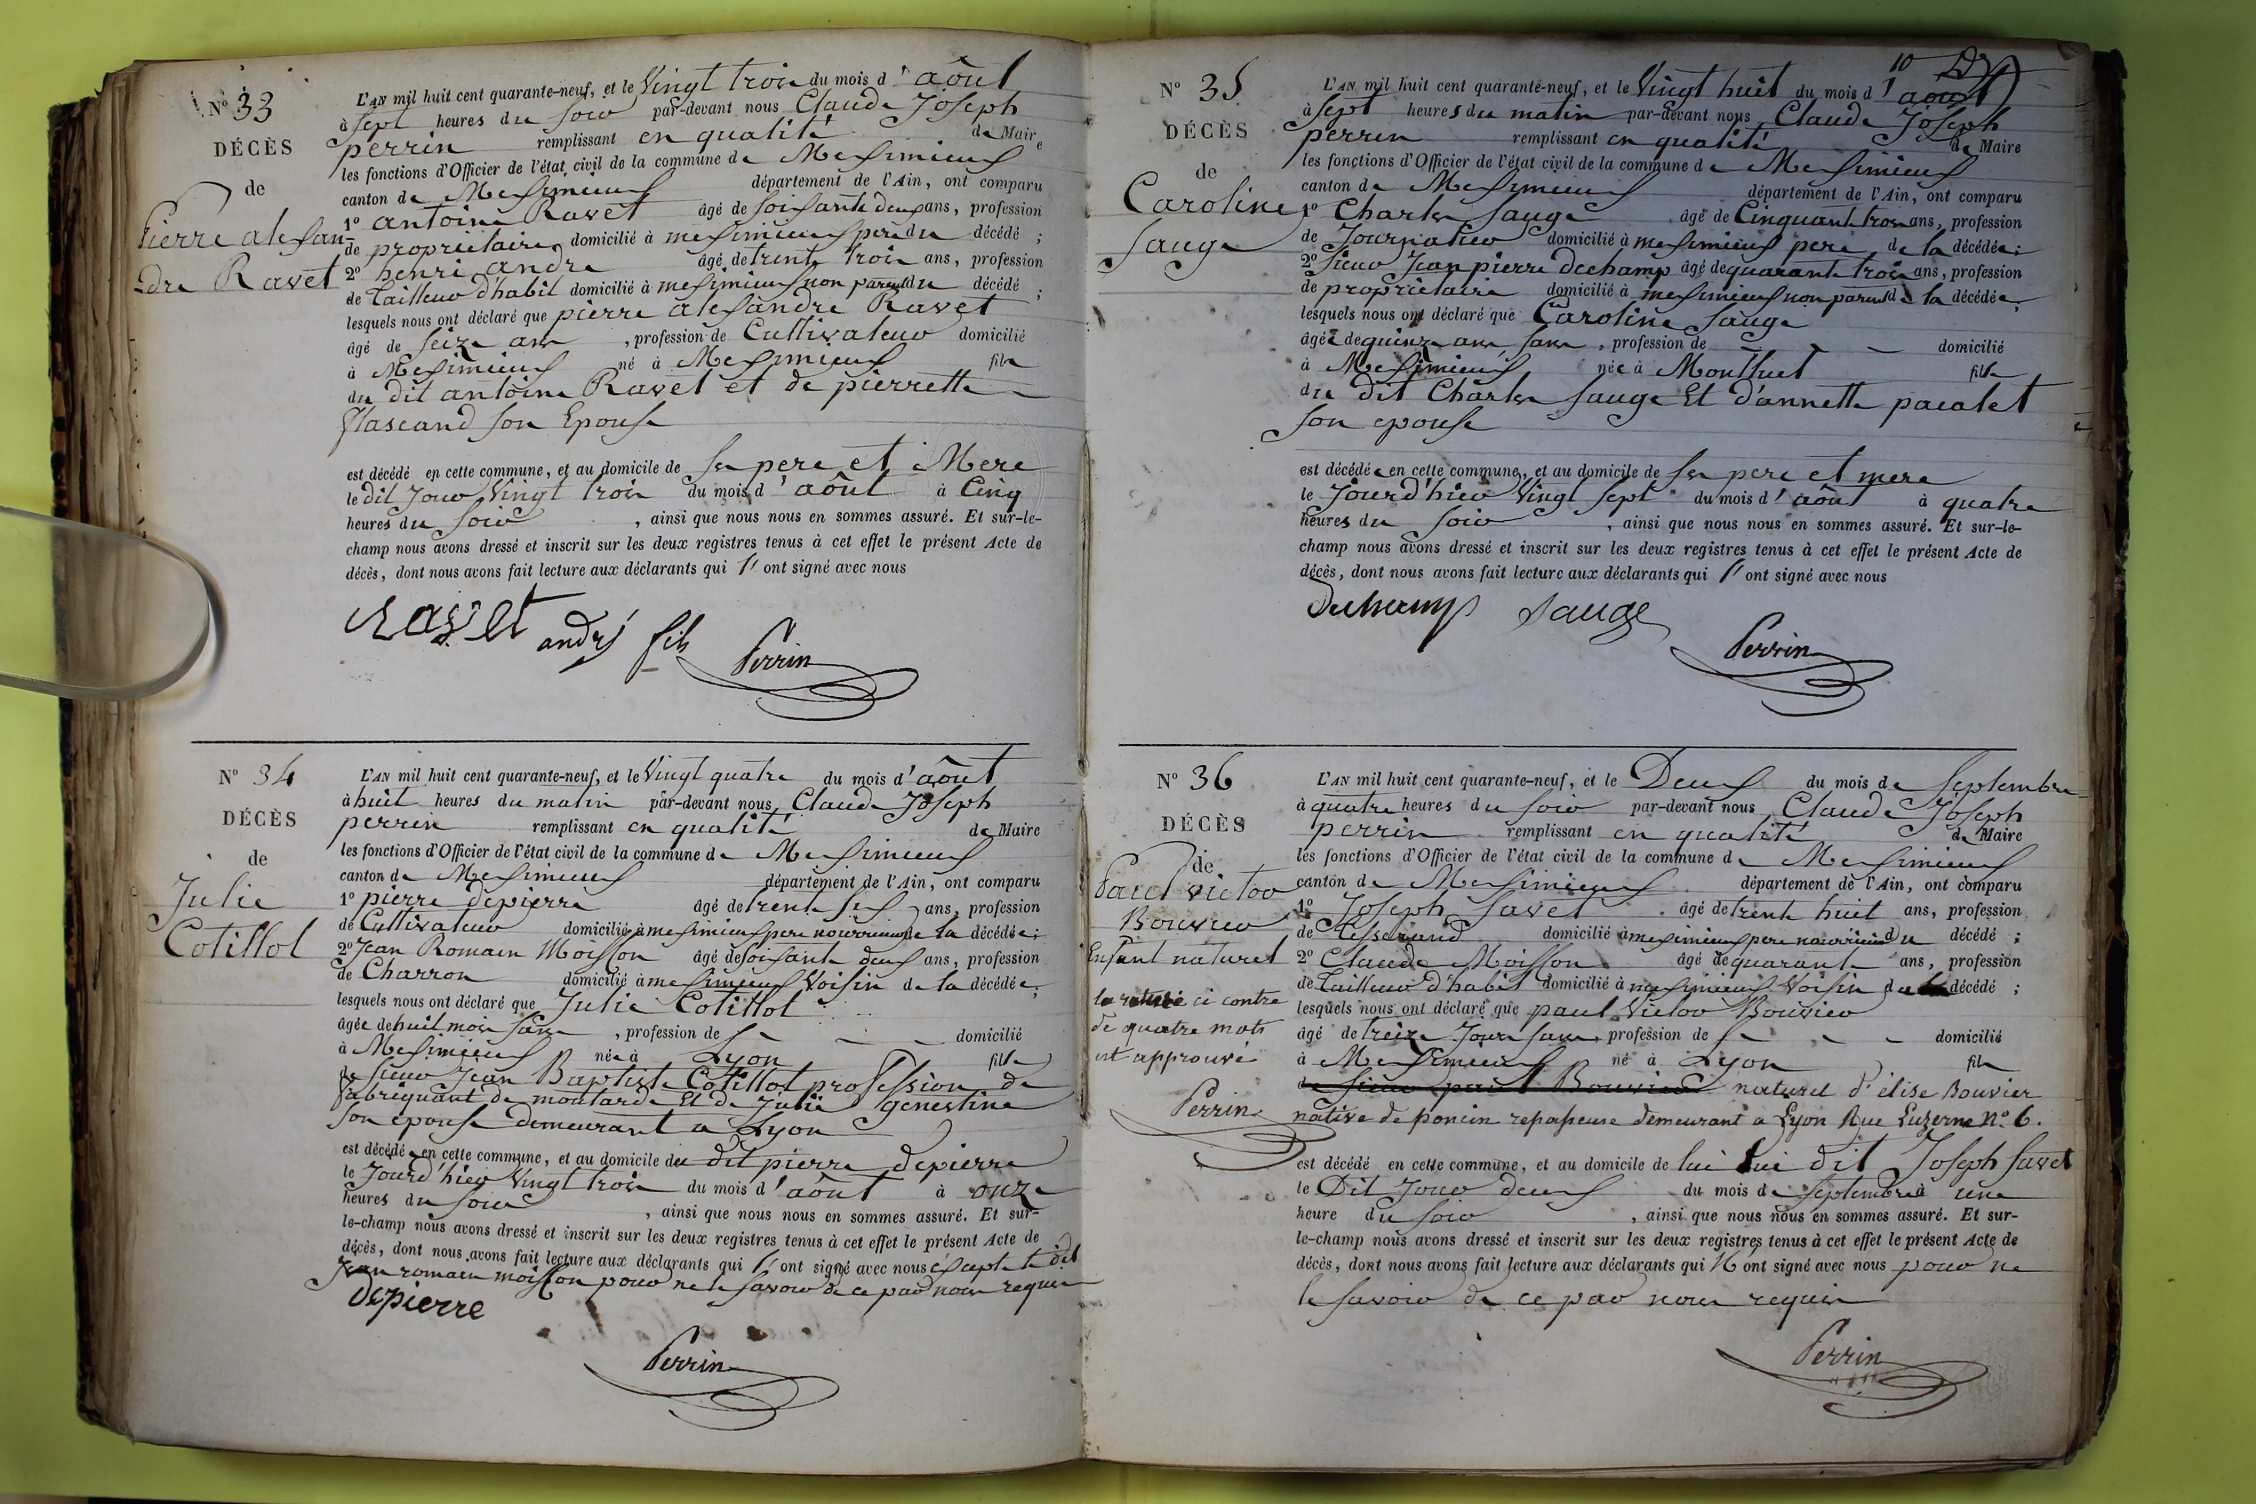 N° 33
DÉCÈS
de
Pierre alesan-
dre Ravet
L'AN mil huit cent quarante-neuf, et le Vingt trois du mois d'août
à sept heures du soir par-devant nous Claude Joseph
perrin remplissant en qualité de Maire
les fonctions d'Officier de l'état civil de la commune de Messimieux
canton de Messimieux département de l'Ain, ont comparu
1° antoine Ravet âgé de soisante deux ans, profession
de proprietaire, domicilié à messimieux pere du décédé ;
2° henri andre âgé de trente trois ans, profession
de tailleur d'habit domicilié à messimieux non parent du décédé ;
lesquels nous ont déclaré que pierre alesandre Ravet
âgé de seize ans , profession de Cultivateur domicilié
à Messimieux né à Messimieux fils
du dit antoine Ravet et de pierrette
son Epouse
est décédé en cette commune, et au domicile de ses pere et Mere
le dit Jour Vingt trois du mois d'août à Cinq
heures du soir , ainsi que nous nous en sommes assuré. Et sur-le-
champ nous avons dressé et inscrit sur les deux registres tenus à cet effet le présent Acte de
décès, dont nous avons fait lecture aux déclarants qui l'ont signé avec nous
Ravet andré fils Perrin
N° 34
DÉCÈS
de
Julie
Cotillot
L'AN mil huit cent quarante-neuf, et le Vingt quatre du mois d'août
à huit heures du matin par-devant nous Claude Joseph
perrin remplissant en qualité de Maire
les fonctions d'Officier de l'état civil de la commune de Messimieux
canton de Messimieux département de l'Ain, ont comparu
1° pierre depierre âgé de trente six ans, profession
de Cultivateur domicilié à messimieux pere nourricier de la décédée ;
2° Jean Romain Moisson âgé de soisante deux ans, profession
de Charron domicilié à messimieux Voisin de la décédée ;
lesquels nous ont déclaré que Julie Cotillot
âgée de huit mois sans , profession de domicilié
à Messimieux née à Lyon fille
de sieur Jean Baptiste Cotillot profession de
fabriquant de moutarde Et de Julie genestine
son epouse demeurant a Lyon
est décédée en cette commune, et au domicile du dit pierre depierre
le Jourd'hier Vingt trois du mois d'août à onze
heures du soir , ainsi que nous nous en sommes assuré. Et sur-
le-champ nous avons dressé et inscrit sur les deux registres tenus à cet effet le présent Acte de
décès, dont nous avons fait lecture aux déclarants qui l'ont signé avec nous éxcepté le dit
Jean romain moisson pour ne le savoir de ce par nous requis
depierre
Perrin
10
N° 35
DÉCÈS
de
Caroline
Sauge
L'AN mil huit cent quarante-neuf, et le Vingt huit du mois d'août
à sept heures du matin par-devant nous Claude Joseph
perrin remplissant en qualité de Maire
les fonctions d'Officier de l'état civil de la commune de Messimieux
canton de Messimieux département de l'Ain, ont comparu
1° Charles Sauge âgé de Cinquante trois ans, profession
de Journalier domicilié à messimieux pere de la décédée ;
2° sieur Jean pierre dechamp âgé de quarante trois ans, profession
de proprietaire domicilié à messimieux non parent de la décédée ;
lesquels nous ont déclaré que Caroline Sauge
âgée de quinze ans sans , profession de domicilié
à Messimieux née à Montluel fille
du dit Charles Sauge Et d'annette pacalet
son epouse
est décédée en cette commune, et au domicile de ses pere et mere
le Jourd'hier Vingt sept du mois d'août à quatre
heures du soir , ainsi que nous nous en sommes assuré. Et sur-le-
champ nous avons dressé et inscrit sur les deux registres tenus à cet effet le présent Acte de
décès, dont nous avons fait lecture aux déclarants qui l'ont signé avec nous
Duchamp Sauge
Perrin
N° 36
DÉCÈS
de
Paul victor
Bouvier
Enfant naturel
la rature ci contre
de quatre mots
est approuvé
Perrin
L'AN mil huit cent quarante-neuf, et le Deux du mois de Septembre
à quatre heures du soir par-devant nous Claude Joseph
perrin remplissant en qualité de Maire
les fonctions d'Officier de l'état civil de la commune de Messimieux
canton de Messimieux département de l'Ain, ont comparu
1° Joseph Savet âgé de trente huit ans, profession
de tisserand domicilié à messimieux pere nourricier du décédé ;
2° Claude Moisson âgé de quarante ans, profession
de tailleur d'habit domicilié à messimieux Voisin du décédé ;
lesquels nous ont déclaré que paul Victor Bouvier
âgé de treize Jours sans profession de domicilié
à Messimieux né à Lyon fils
de sieur paul Bouvier naturel d'élise Bouvier
native de poncin repasseuse demeurant a Lyon Rue Luzerne N° 6.
est décédé en cette commune, et au domicile de lui lui dit Joseph Savet
le Dit Jour deux du mois de septembre à une
heure du soir , ainsi que nous nous en sommes assuré. Et sur-
le-champ nous avons dressé et inscrit sur les deux registres tenus à cet effet le présent Acte de
décès, dont nous avons fait lecture aux déclarants qui N'ont signé avec nous pour ne
le savoir de ce par nous requis
Perrin